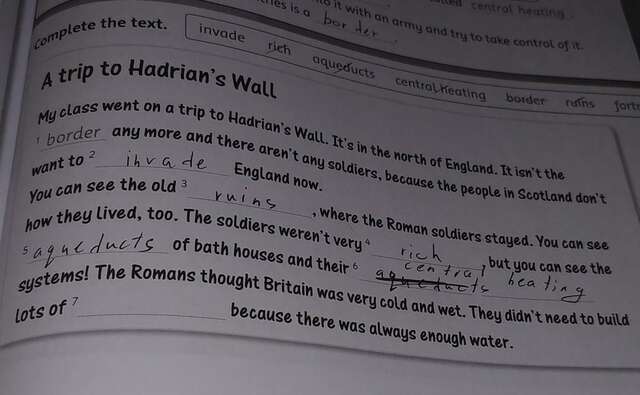 to it with an army and try to take control of it.
ries is a border
central heating.
Complete the text.
invade rich aqueducts central heating border ruins fort
A trip to Hadrian's Wall
My class went on a trip to Hadrian's Wall. It's in the north of England. It isn't the
1 border any more and there aren't any soldiers, because the people in Scotland don't
want to 2 invade England now.
You can see the old 3 ruins, where the Roman soldiers stayed. You can see
how they lived, too. The soldiers weren't very 4 rich, but you can see the
5 aqueducts of bath houses and their 6 aqueducts central heating
systems! The Romans thought Britain was very cold and wet. They didn't need to build
lots of 7 because there was always enough water.